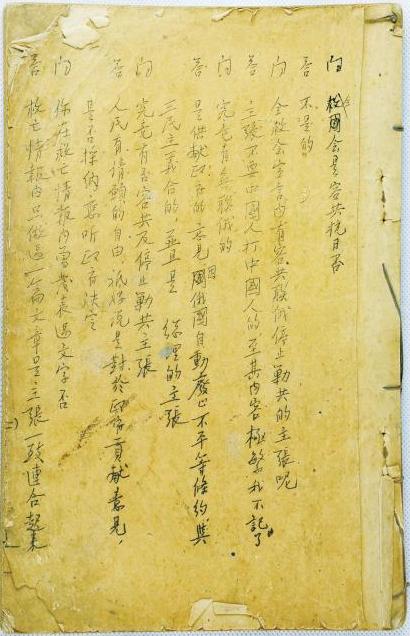 问 救國会是容共抗日否
答 不是的
问 全救会宣言內有容共联俄停止勦共的主張呢
答 主張不要中國人打中國人的 至其內容極繁 我不記了
问 究竟有無聯俄的
答 是供献政府的意見 因俄國自動廢止不平等條約與
三民主義合的 並且是 總理的主張
问 究竟有否容共及停止勦共主張
答 人民有請願的自由 祇好說是對於政府貢献意見，
是否採納悉听政府決定
问 你在救亡情報內曾發表過文字否
答 救亡情報內只做過一篇文章是主張一致連合起來